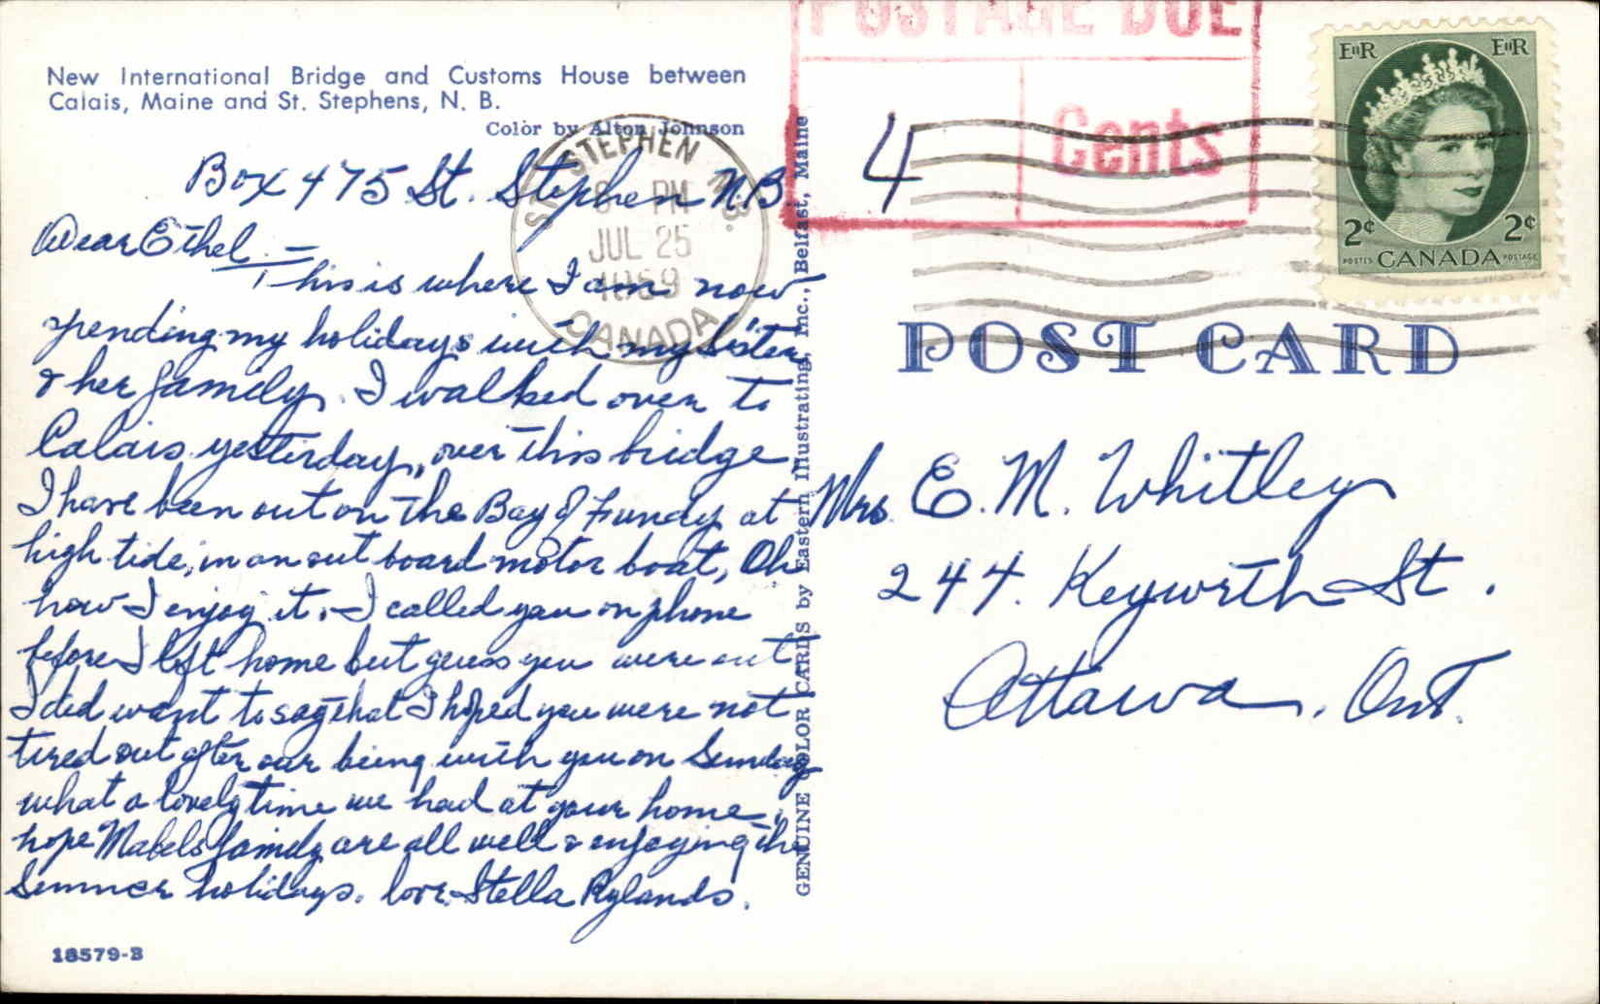 New International Bridge and Customs House between
Calais, Maine and St. Stephens, N. B.
Color by Alton Johnson
Box 475 St. Stephen N.B
Dear Ethel –
This is where I am now
spending my holidays with my sister
& her family. I walked over to
Calais yesterday, over this bridge
I have been out on the Bay of Fundy at
high tide, in an out board motor boat, Oh
how I enjoy it. I called you on phone
before I left home but guess you were out
I did want to say that I hoped you were not
tired out after our being with you on Sunday
what a lovely time we had at your home.
hope Mabels family are all well & enjoying the
Summer holidays. love Stella Rylands.
18579-B
GENUINE COLOR CARDS by Eastern Illustrating, Inc., Belfast, Maine
ST. STEPHEN N.B.
PM
JUL 25
1959
CANADA
POSTAGE DUE
4 Cents
EIIR EIIR
2¢ 2¢
POSTES CANADA POSTAGE
POST CARD
Mrs. E. M. Whitley
244. Keyworth St.
Ottawa, Ont.